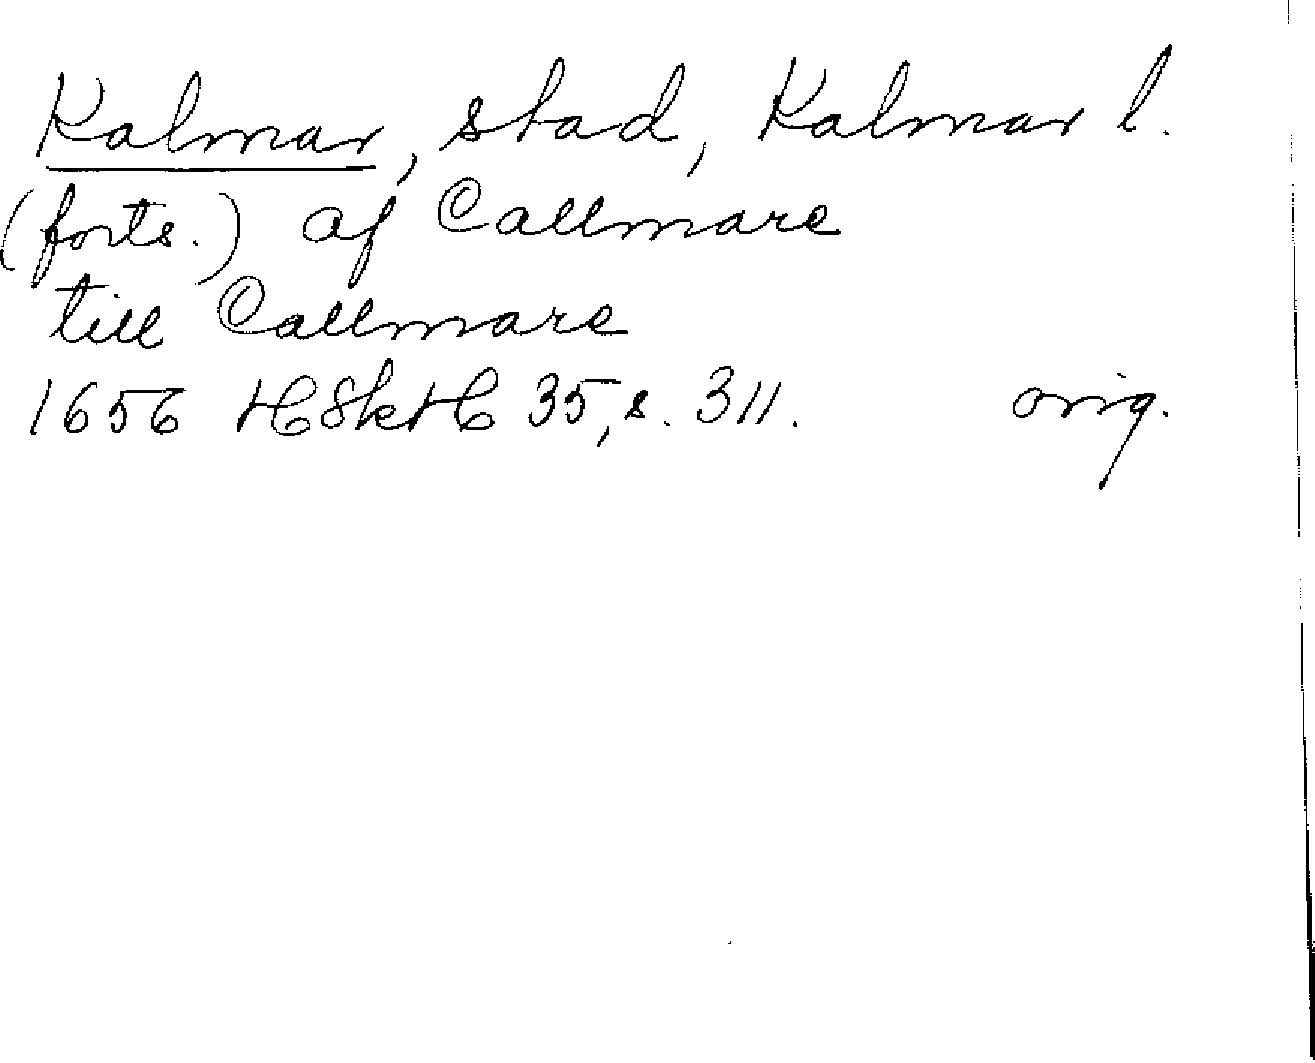 Kalmar, stad, Kalmar l.
(forts.) af Callmare
till Callmare
1656 HSkH 35, s. 311. orig.